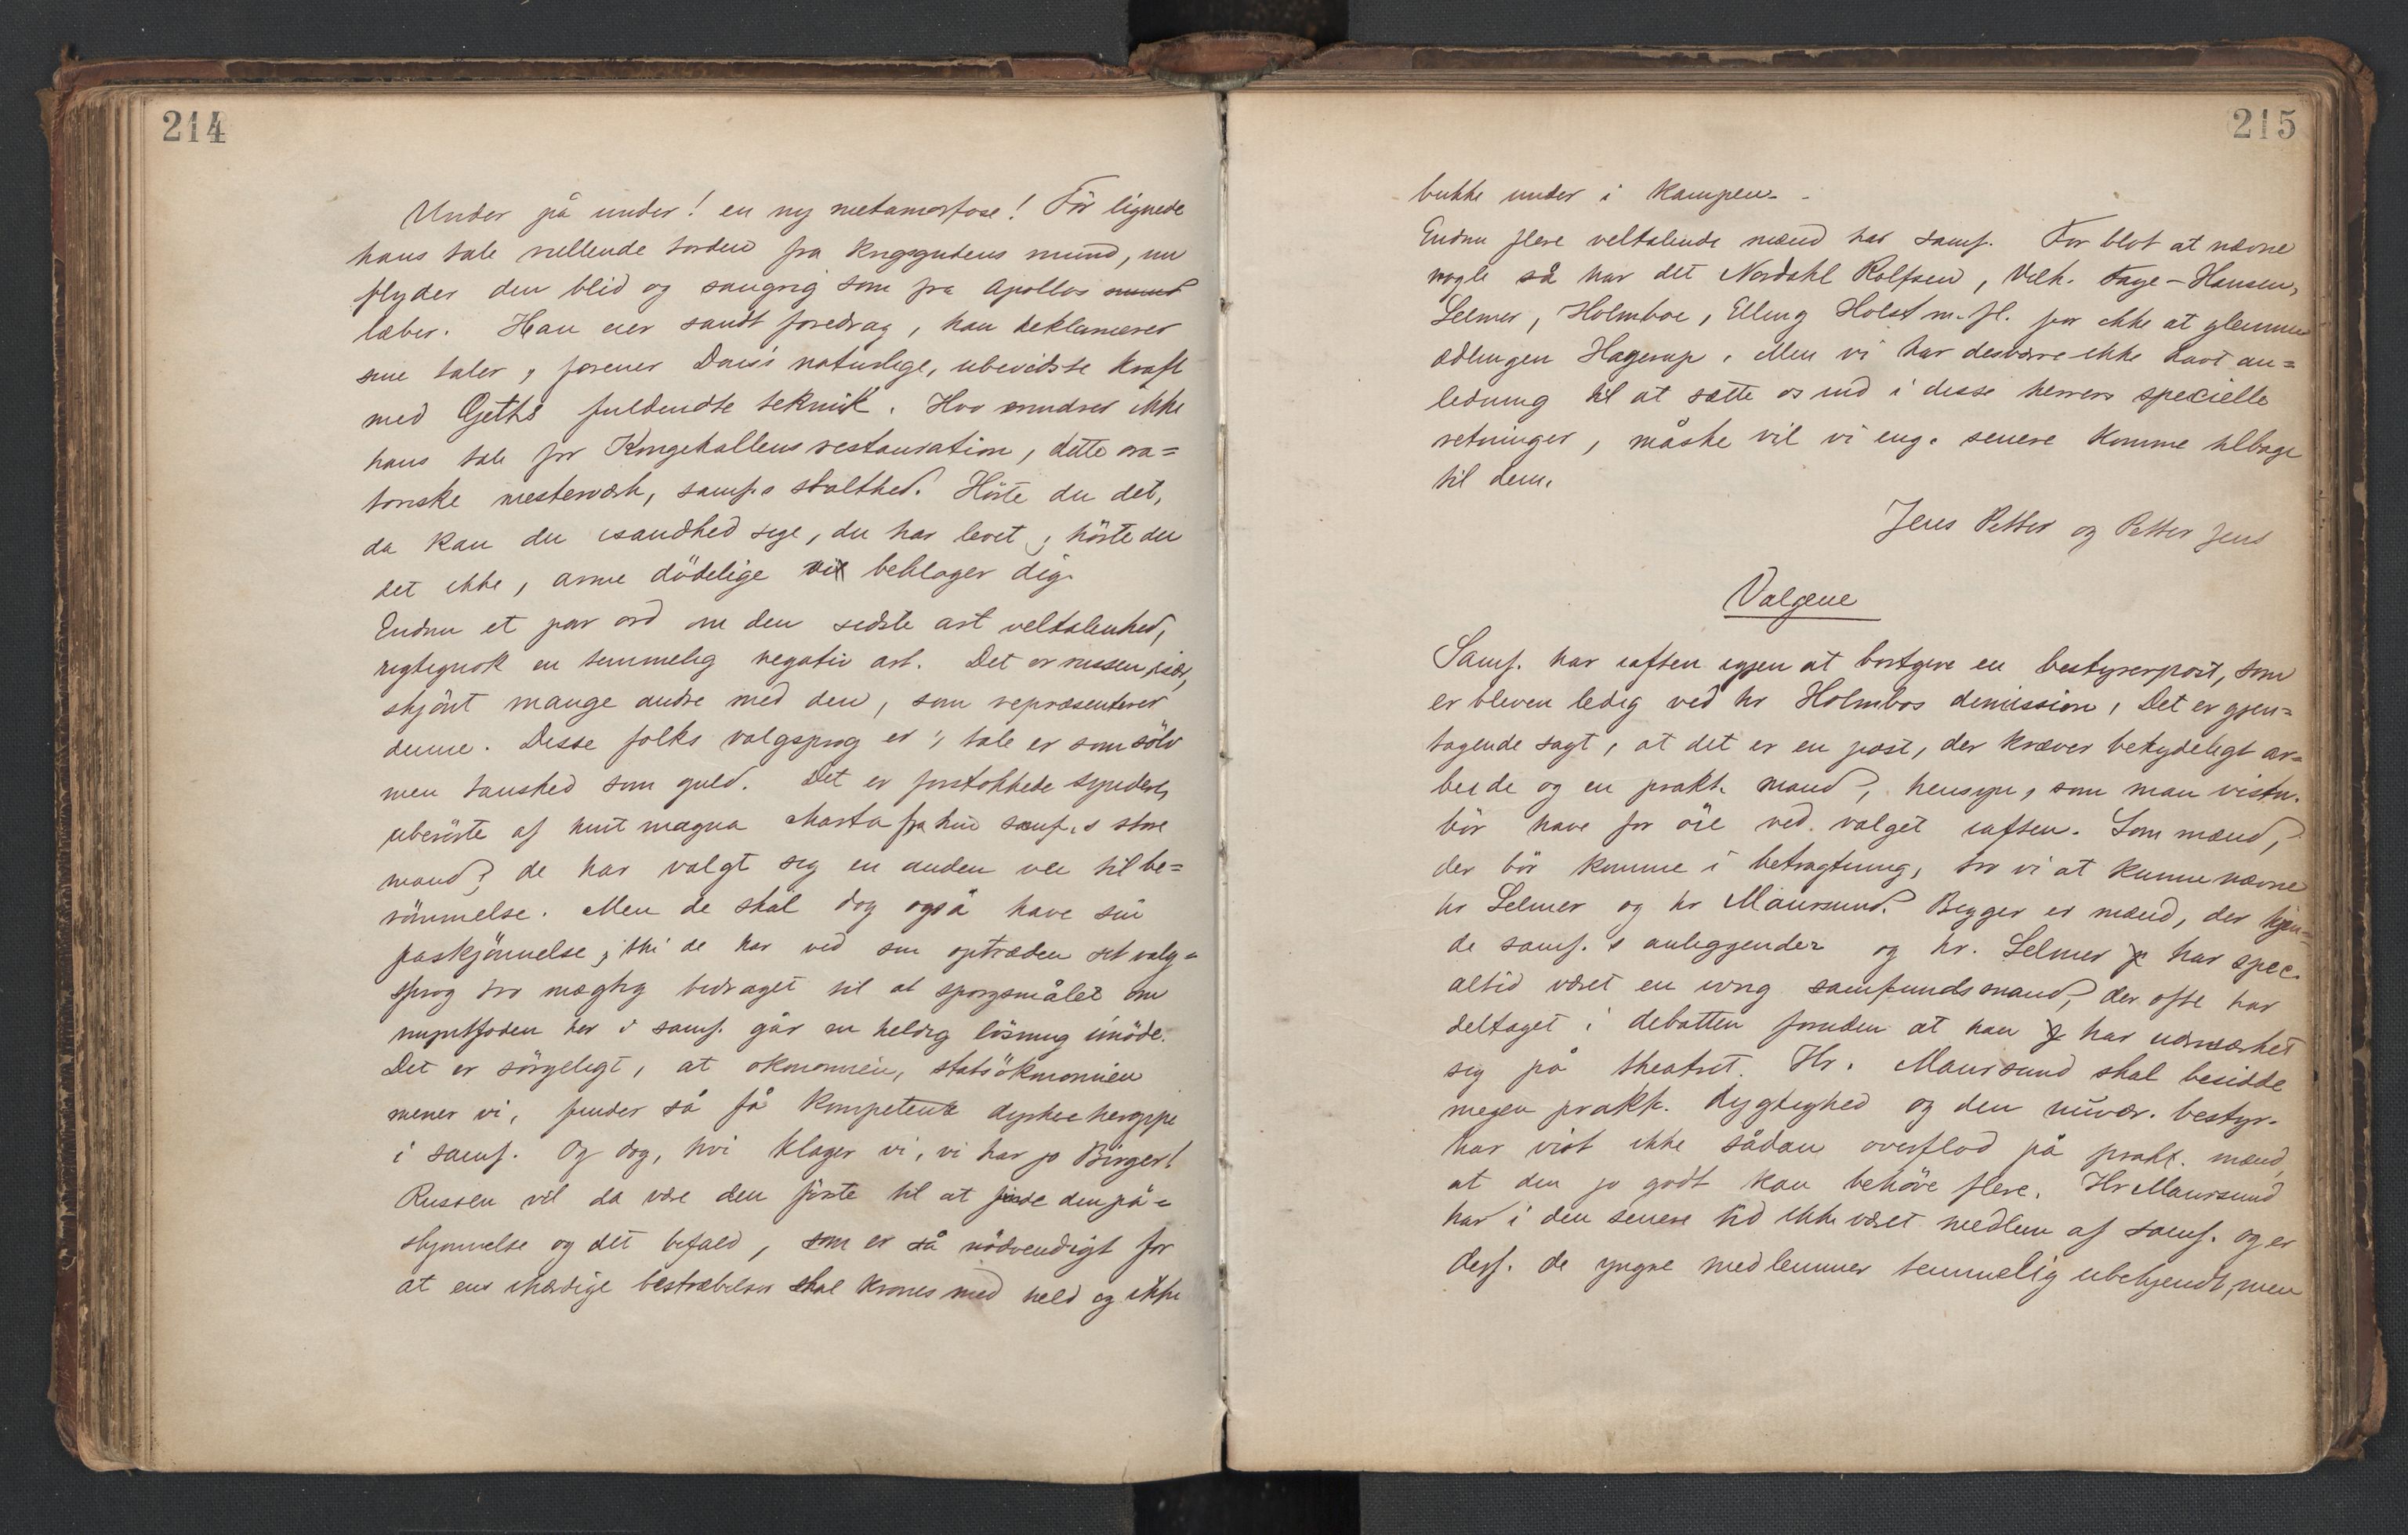 214
Under på under! en ny metamorfose! Før lignede
hans tale rullende torden fra krigsgudens mund, nu
flyder den blid og sangrig som fra Apollos mund
læber. Han eier sandt foredrag, han deklamerer
sine taler, forener Dons naturlige, ubevidste kraft
med Gjeths fuldendte teknik. Hvo erindrer ikke
hans tale for Kongehallens restauration, dette ora=
toriske mesterværk, samf.s stolthed. Hörte du det,
da kan du isandhed sige, du har levet; hörte du
det ikke, arme dödelige vi beklager dig.
Endnu et par ord om den sidste art veltalenhed,
rigtignok en temmelig negativ art. Det er russen, især,
skjönt mange andre med den, som repræsenterer
denne. Disse folks valgsprog er; tale er som sölv
men taushed som guld. Det er forstokkede syndere,
uberörte af hint magna charta fra hin samf.s store
mand; de har valgt sig en anden vei til be=
römmelse. Men de skal dog også have sin
påskjönnelse; thi de har ved sin optræden sit valg=
sprog tro mægtig bidraget til at spørgsmålet om
myntfoden her i samf. går en heldig lösning imöde.
Det er sörgeligt, at økonomien, statsökonomien
mener vi, finder så få kompetente dyrkere heroppe
i samf. Og dog, hvi klager vi, vi har jo Birger!
Russen vil da være den förste til at finde den på=
skjønnelse og det bifald, som er så nödvendigt for
at ens ihærdige bestræbelser skal krones med held og ikke
215
bukke under i kampen. -
Endnu flere veltalende mænd har samf. For blot at nævne
nogle så har det Nordahl Rolfsen, Vilh. Faye-Hansen,
Selmer, Holmboe, Elling Holst m. fl. for ikke at glemme
ædlingen Hagerup. Men vi har desværre ikke havt an=
ledning til at sætte os ind i disse herrers specielle
retninger, måske vil vi eng. senere komme tilbage
til dem.
Jens Petter og Petter Jens
Valgene
Samf. har iaften igjen at bortgive en bestyrerpost, som
er bleven ledig ved hr Holmbos demission. Det er gjen=
tagende sagt, at det er en post, der kræver betydeligt ar=
beide og en prakt. mand, hensyn, som man vistn.
bör have for öie ved valget iaften. Som mænd,
der bör komme i betragtning, tro vi at kunne nævne
hr Selmer og hr Maursund. Begger er mænd, der kjen=
de samf.s anliggender og hr. Selmer har spec.
altid været en ivrig samfundsmand, der ofte har
deltaget i debatten foruden at han har udmærket
sig på theatret. Hr. Maursund skal besidde
megen prakt. dygtighed og den nuvær. bestyr.
har vist ikke sådan overflod på prakt. mænd,
at den jo godt kan behöve flere. Hr Maursund
har i den senere tid ikke været medlem af samf. og er
desf. de yngre medlemmer temmelig ubekjendt, men